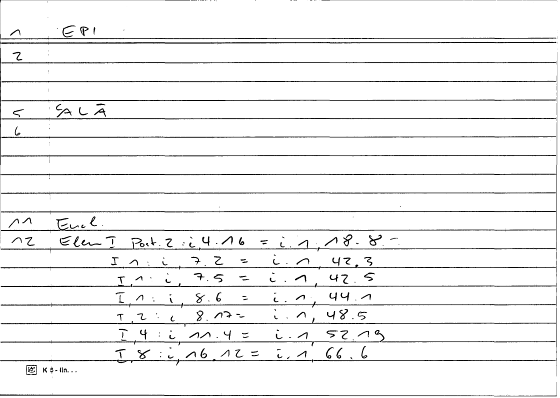 1 EPI
2
5 SALĀ
6
11 Eucl.
12 Elem I Post. 2 : i, 4.16 = i.1, 18.8-
I, 1 : i, 7.2 = i.1, 42.3
I, 1 : i, 7.5 = i.1, 42.5
I, 1 : i, 8.6 = i.1, 44.1
I, 2 : i, 8.17 = i.1, 48.5
I, 4 : i, 11.4 = i.1, 52.19
I, 8 : i, 16.12 = i.1, 66.6
K 5 - lin. . .